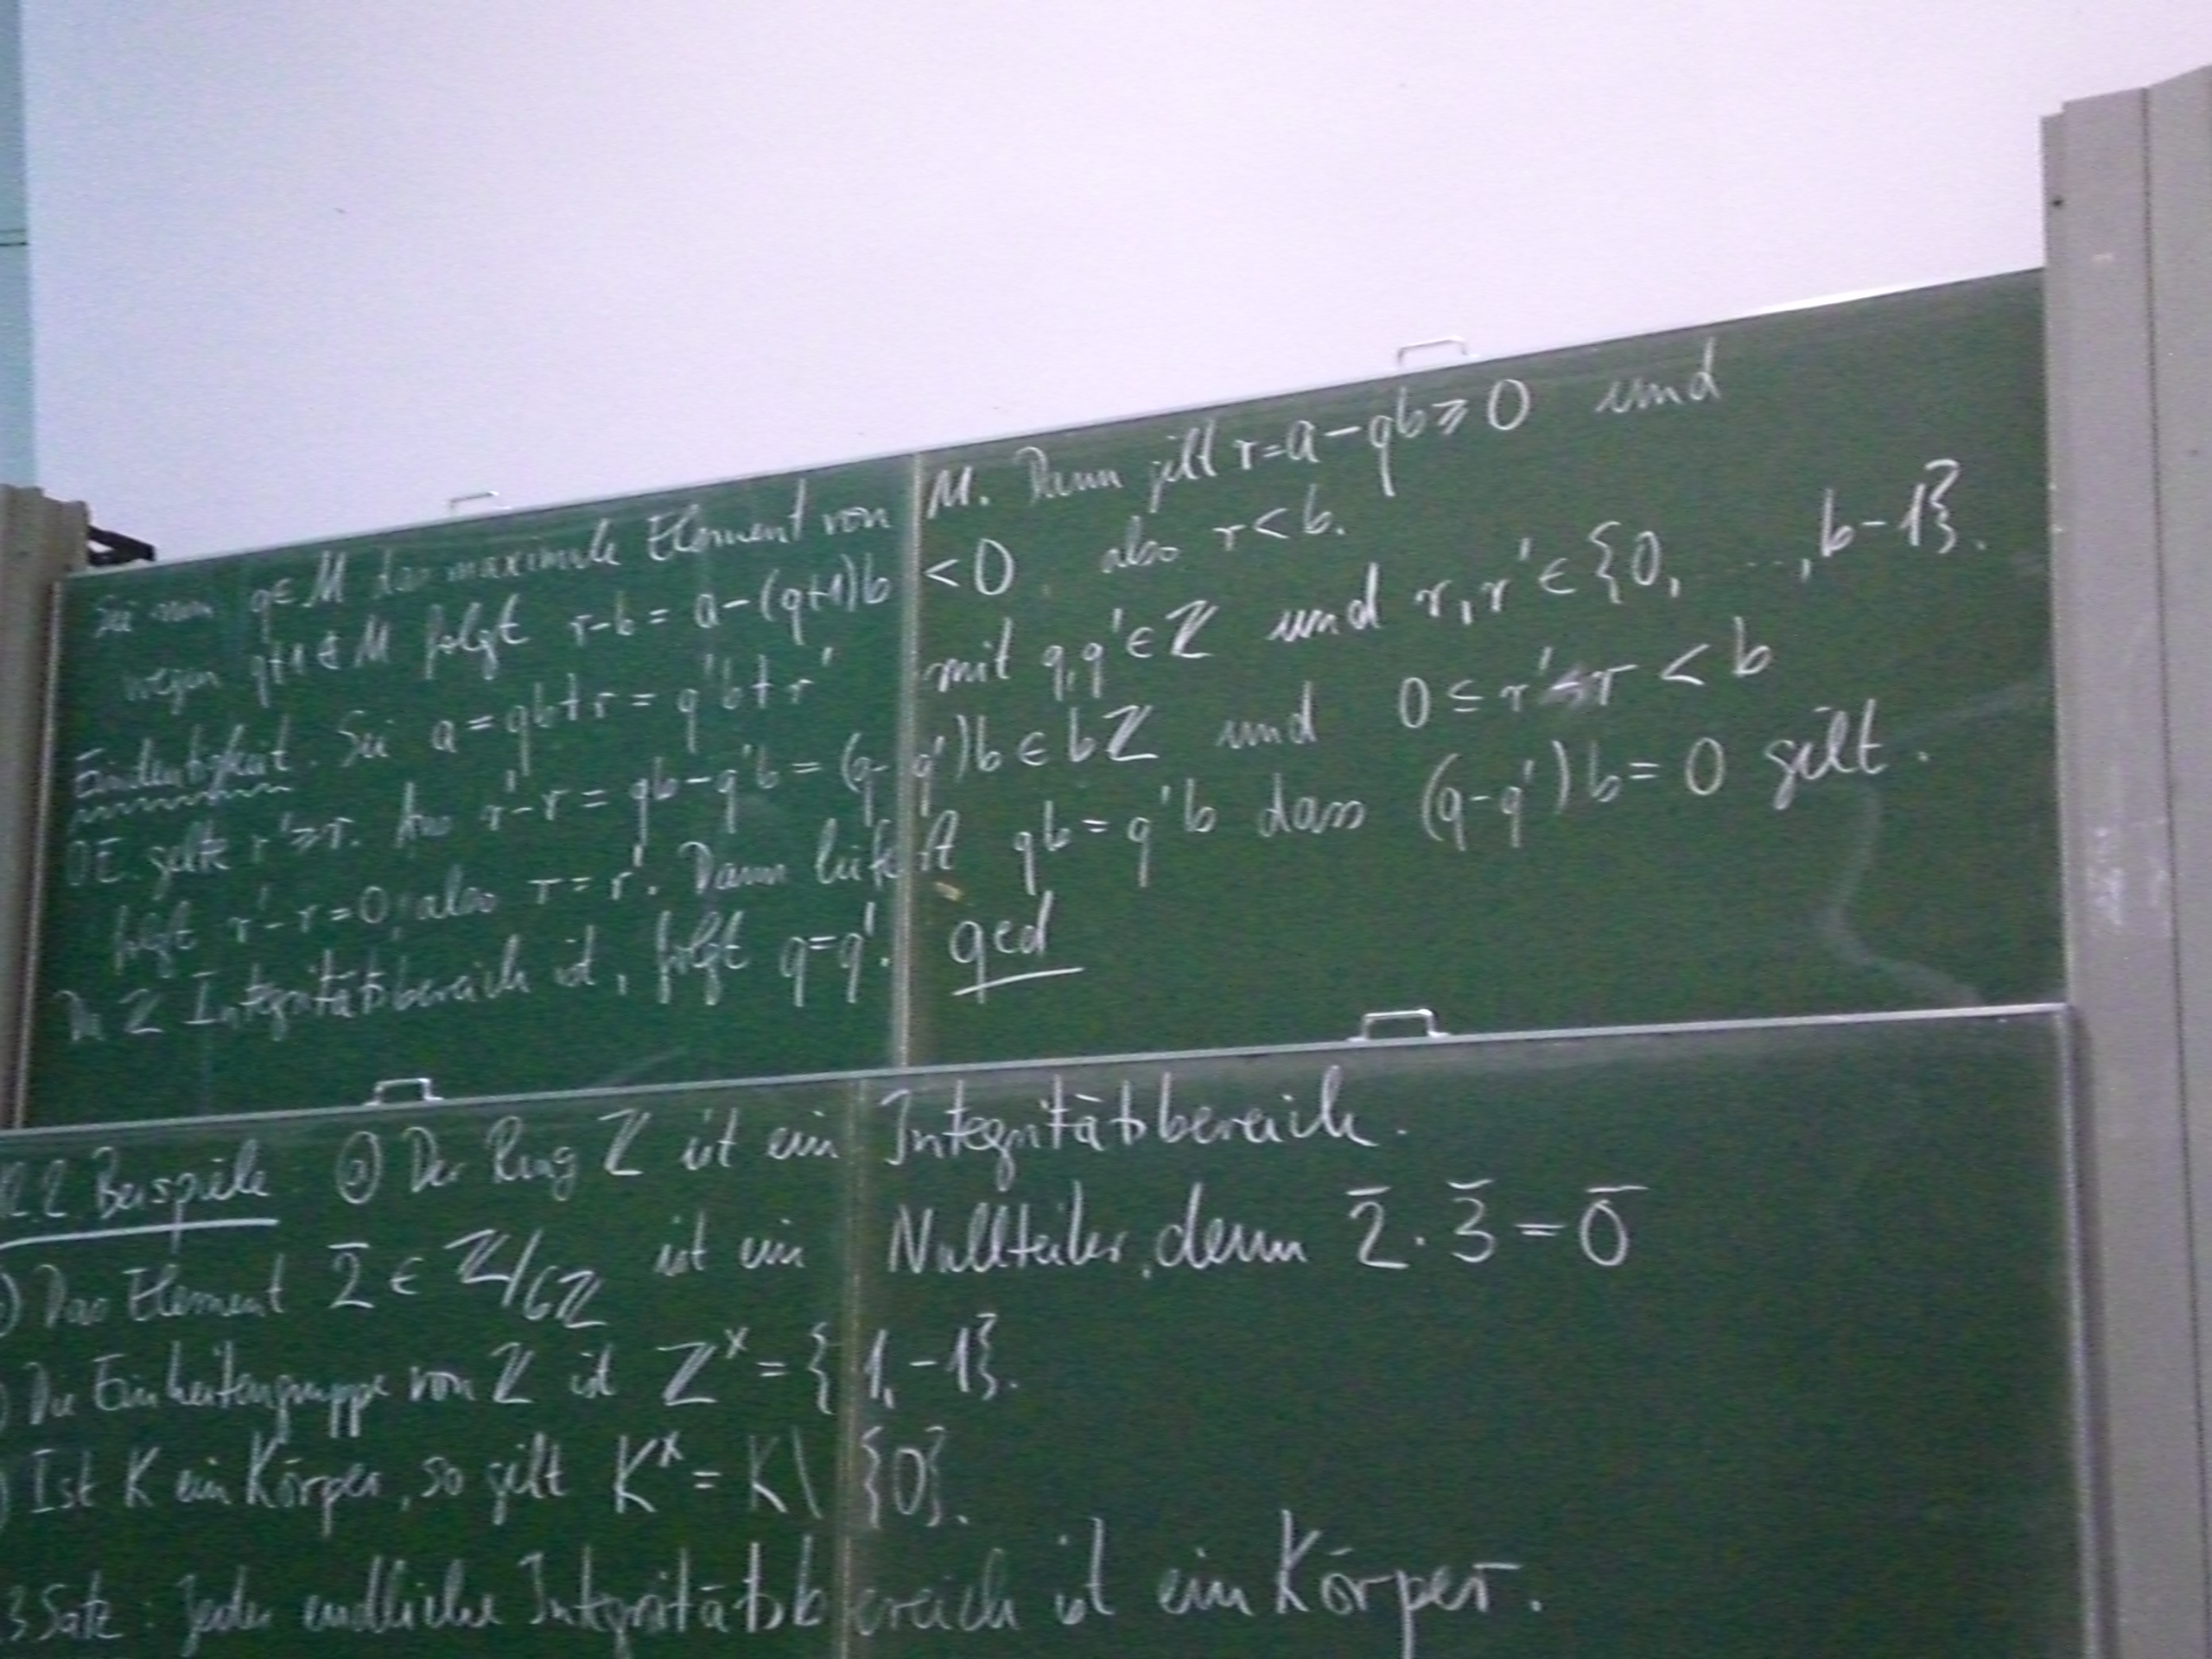 Sei nun q∈M das maximale Element von M. Dann gilt r=a-qb⩾0 und
wegen q+1∉M folgt r-b = a-(q+1)b < 0, also r<b.
Eindeutigkeit. Sei a=qb+r=q'b+r' mit q,q'∈ℤ und r,r'∈{0, ..., b-1}.
OE. gelte r'⩾r. Aus r'-r = qb-q'b = (q-q')b ∈ bℤ und 0≤r'-r<b
folgt r'-r=0, also r=r'. Dann liefert qb=q'b dass (q-q')b=0 gilt.
Da ℤ Integritätsbereich ist, folgt q=q'. qed
2.2. Beispiele ⓐ Der Ring ℤ ist ein Integritätsbereich.
) Das Element 2̄ ∈ ℤ/6ℤ ist ein Nullteiler, denn 2̄·3̄=0̄
) Die Einheitengruppe von ℤ ist ℤ^× = {1,-1}.
) Ist K ein Körper, so gilt K^× = K\{0}.
.3 Satz: Jeder endliche Integritätsbereich ist ein Körper.